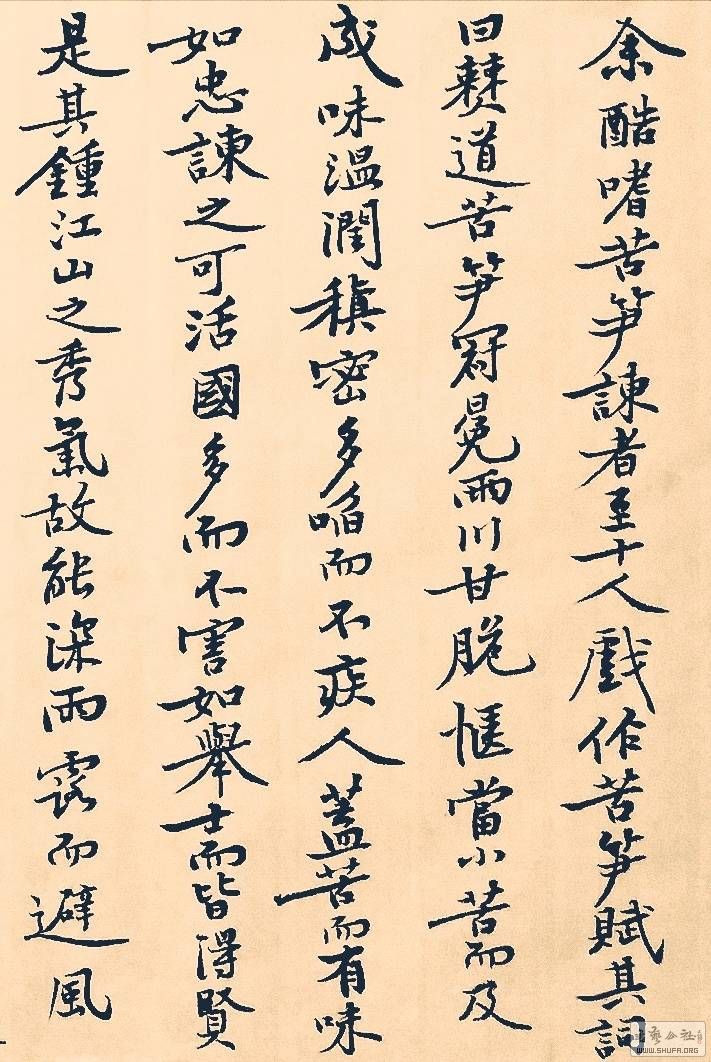 余酷嗜苦笋諫者至十人戲作苦笋賦其詞
曰僰道苦笋冠冕兩川甘脆愜當小苦而及
成味溫潤稹密多啗而不疾人蓋苦而有味
如忠諫之可活國多而不害如舉士而皆得賢
是其鍾江山之秀氣故能深雨露而避風
WWW.SHUFA.ORG